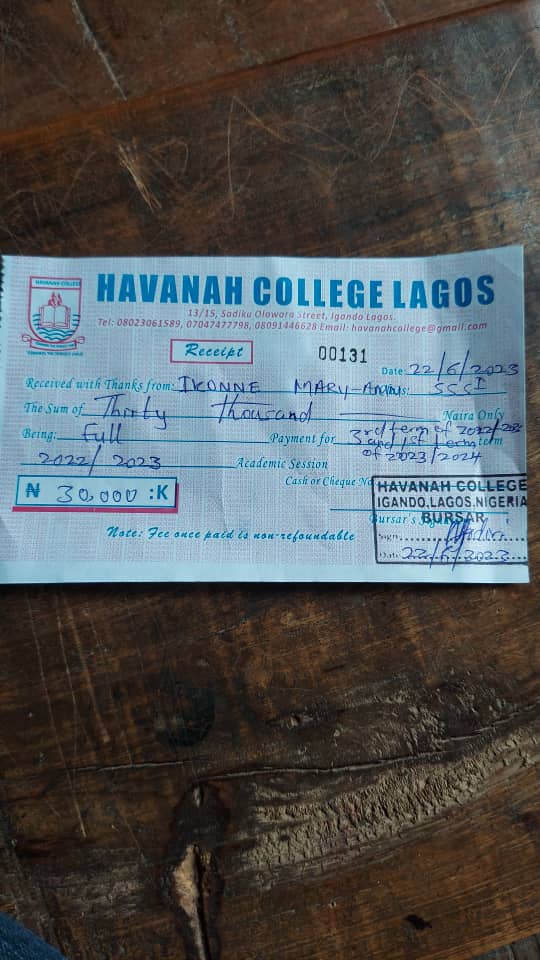 HAVANAH COLLEGE
HAVANAH COLLEGE LAGOS
13/15, Sadiku Olowora Street, Igando Lagos.
Tel: 08023061589, 07047477798, 08091446628 Email: havanahcollege@gmail.com
Receipt 00131
Date: 22/6/2023
Received with Thanks from: IKONNE MARY- SSS I
The Sum of Thirty Thousand Naira Only
Being: Full Payment for 3rd term of 2022/ term
3 and 1st term
2022/2023 Academic Session of 2023/2024
Cash or Cheque No
₦ 30,000 :K
HAVANAH COLLEGE
IGANDO, LAGOS, NIGERIA
BURSAR
Bursar's
Sign
Date 22/6/2023
Note: Fee once paid is non-refoundable